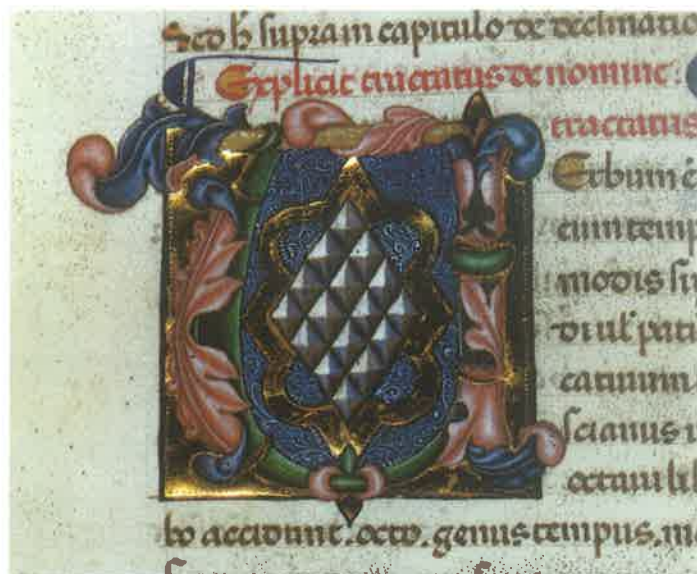 Sed h supra in capitulo de declinatio
Explicit tractatus de nomine.
tractatus
Erbum e
cum temp
modis su
di ul pati
catiuum.
scianus i
octaui li
bo accidunt. octo. genus tempus. mo